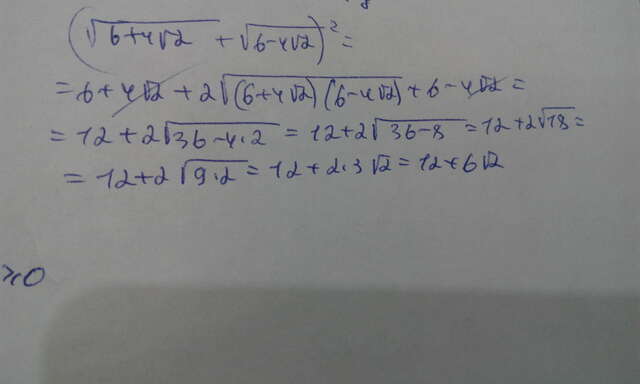 (√(6+4√2) + √(6-4√2))² =
= 6+4√2 + 2√((6+4√2)(6-4√2)) + 6-4√2 =
= 12+2√(36-4·2) = 12+2√(36-8) = 12+2√18 =
= 12+2√(9·2) = 12+2·3√2 = 12+6√2
≥0